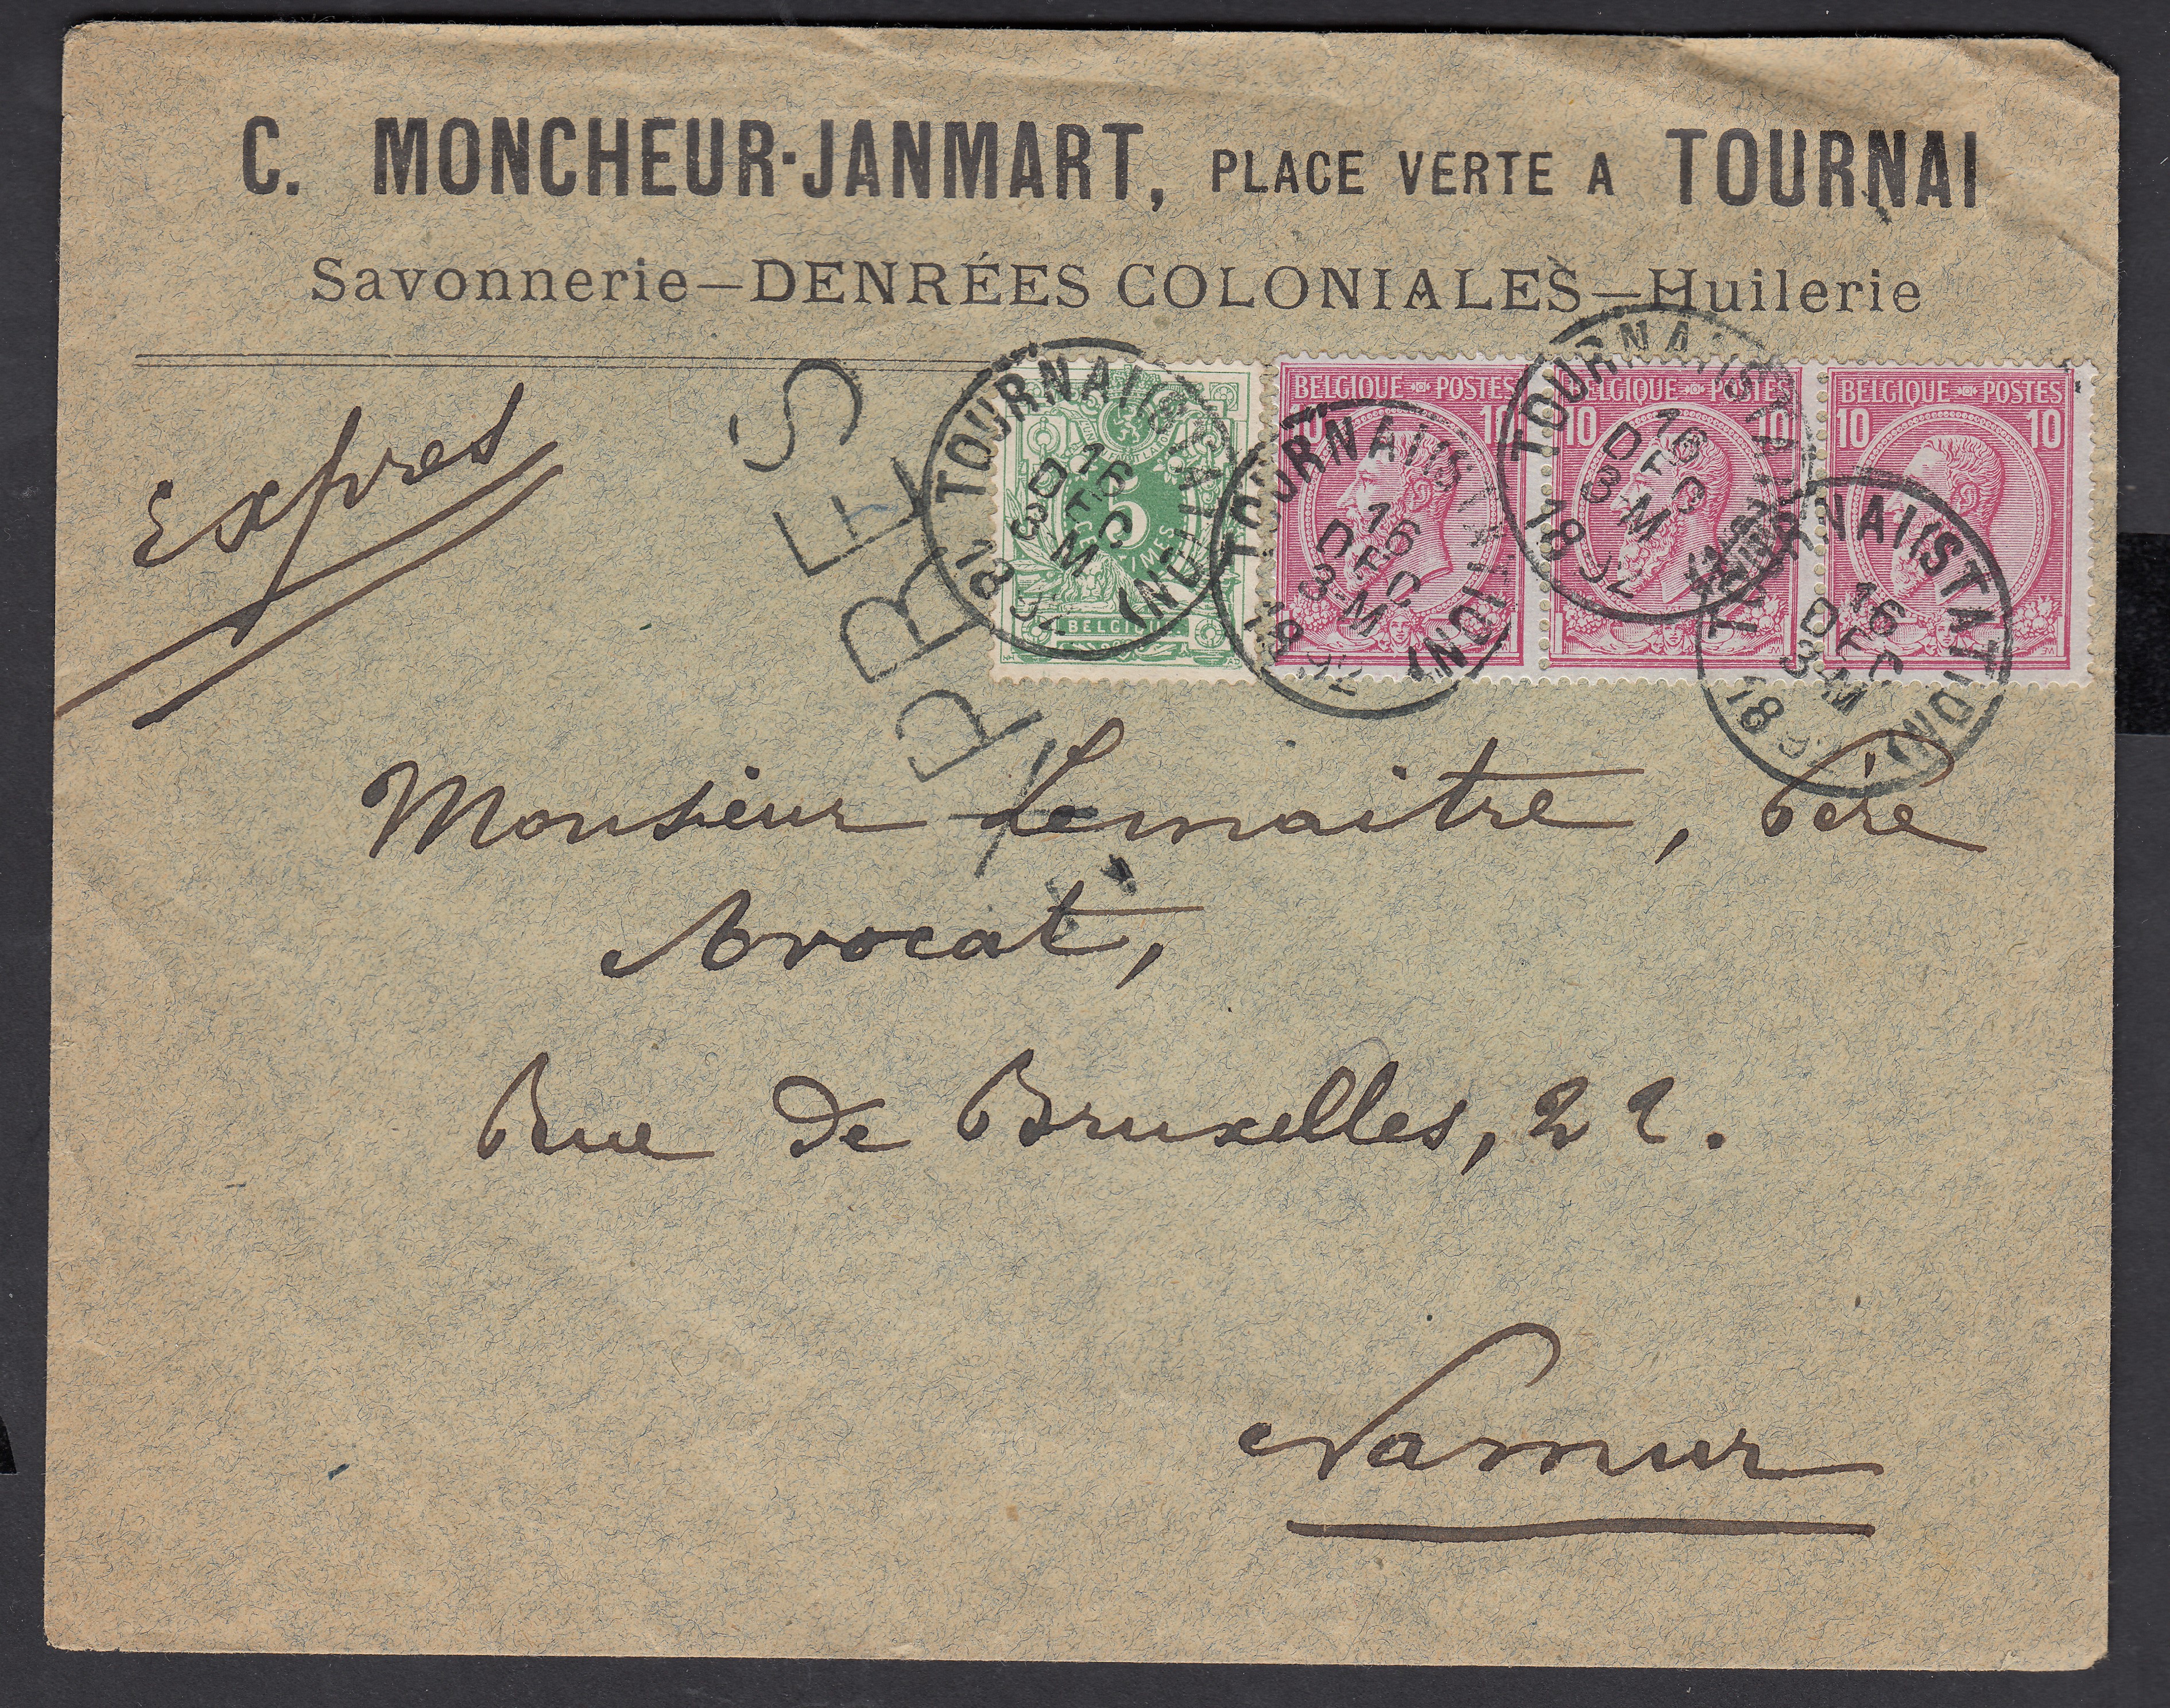 C. MONCHEUR-JANMART, PLACE VERTE A TOURNAI
Savonnerie—DENRÉES COLONIALES—Huilerie
Expres
EXPRES
5
CENTIMES
BELGIQUE
BELGIQUE POSTES
10 10
BELGIQUE POSTES
10 10
BELGIQUE POSTES
10 10
TOURNAI (STATION)
16 DEC
3-M
1892
TOURNAI (STATION)
16 DEC
3-M
1892
TOURNAI (STATION)
16 DEC
3-M
1892
TOURNAI (STATION)
16 DEC
3-M
1892
Monsieur Lemaitre, Père
Avocat,
Rue de Bruxelles, 22.
Namur